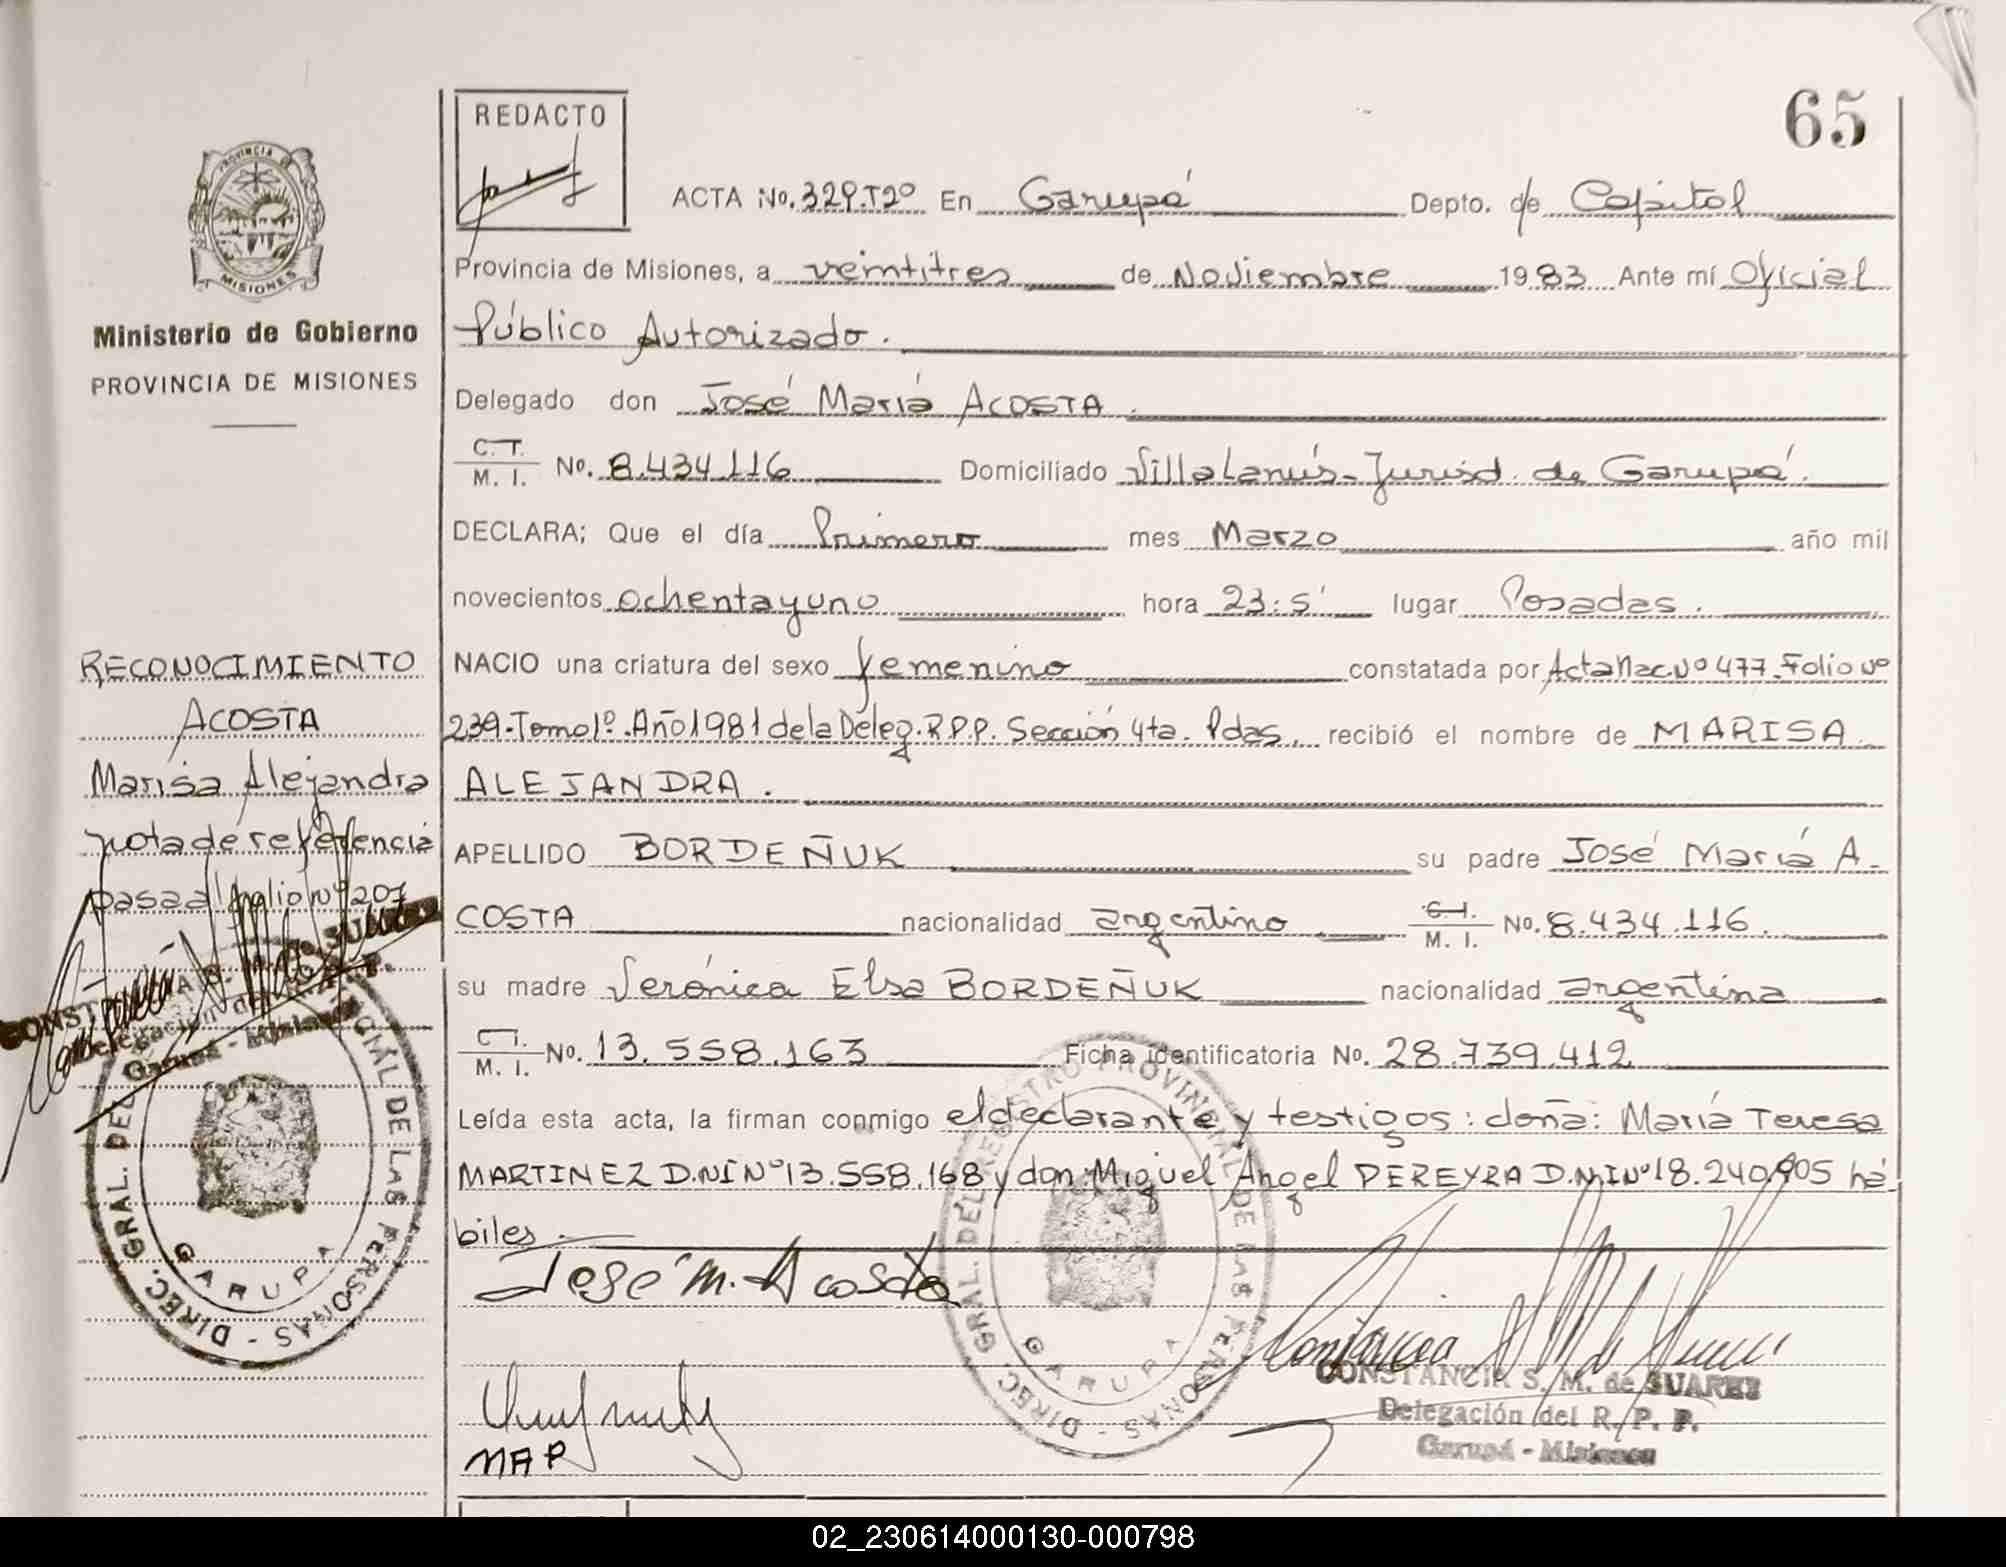 65
REDACTO
ACTA No. 329.T2º En Garupá Depto. de Capital
PROVINCIA DE
MISIONES
Provincia de Misiones, a veintitres de Noviembre 1983 Ante mí Oficial
Ministerio de Gobierno
Público Autorizado.
PROVINCIA DE MISIONES
Delegado don José María ACOSTA
C.I.
M. I. No. 8.434.116 Domiciliado Villa Lanús-Jurisd. de Garupá.
DECLARA; Que el día Primero mes Marzo año mil
novecientos ochentayuno hora 23:5' lugar Posadas.
NACIO una criatura del sexo femenino constatada por Acta Nac. Nº 477. Folio Nº
239.Tomo 1º. Año 1981 de la Deleg. R.P.P. Sección 4ta. Pdas. recibió el nombre de MARISA
ALEJANDRA.
APELLIDO BORDEÑUK su padre José María A-
COSTA nacionalidad argentino C.I.
M. I. No. 8.434.116
su madre Verónica Elsa BORDEÑUK nacionalidad argentina
C.I.
M. I. No. 13.558.163 Ficha identificatoria No. 28.739.412
Leída esta acta, la firman conmigo el declarante y testigos: doña: María Teresa
MARTINEZ D.NI Nº 13.558.168 y don Miguel Angel PEREYRA D.N.I Nº 18.240.905 há-
biles.
José M. Acosta
MAP
CONSTANCIA S. M. de SUAREZ
Delegación del R. P. P.
Garupá - Misiones
DIREC. GRAL. DEL REGISTRO PROVINCIAL DE LAS PERSONAS -
GARUPA
RECONOCIMIENTO
ACOSTA
Marisa Alejandra
nota de referencia
pasa al folio Nº 207
Delegación del
Garupá - Misiones
DIREC. GRAL. DEL DE LAS PERSONAS -
GARUPA
02_230614000130-000798